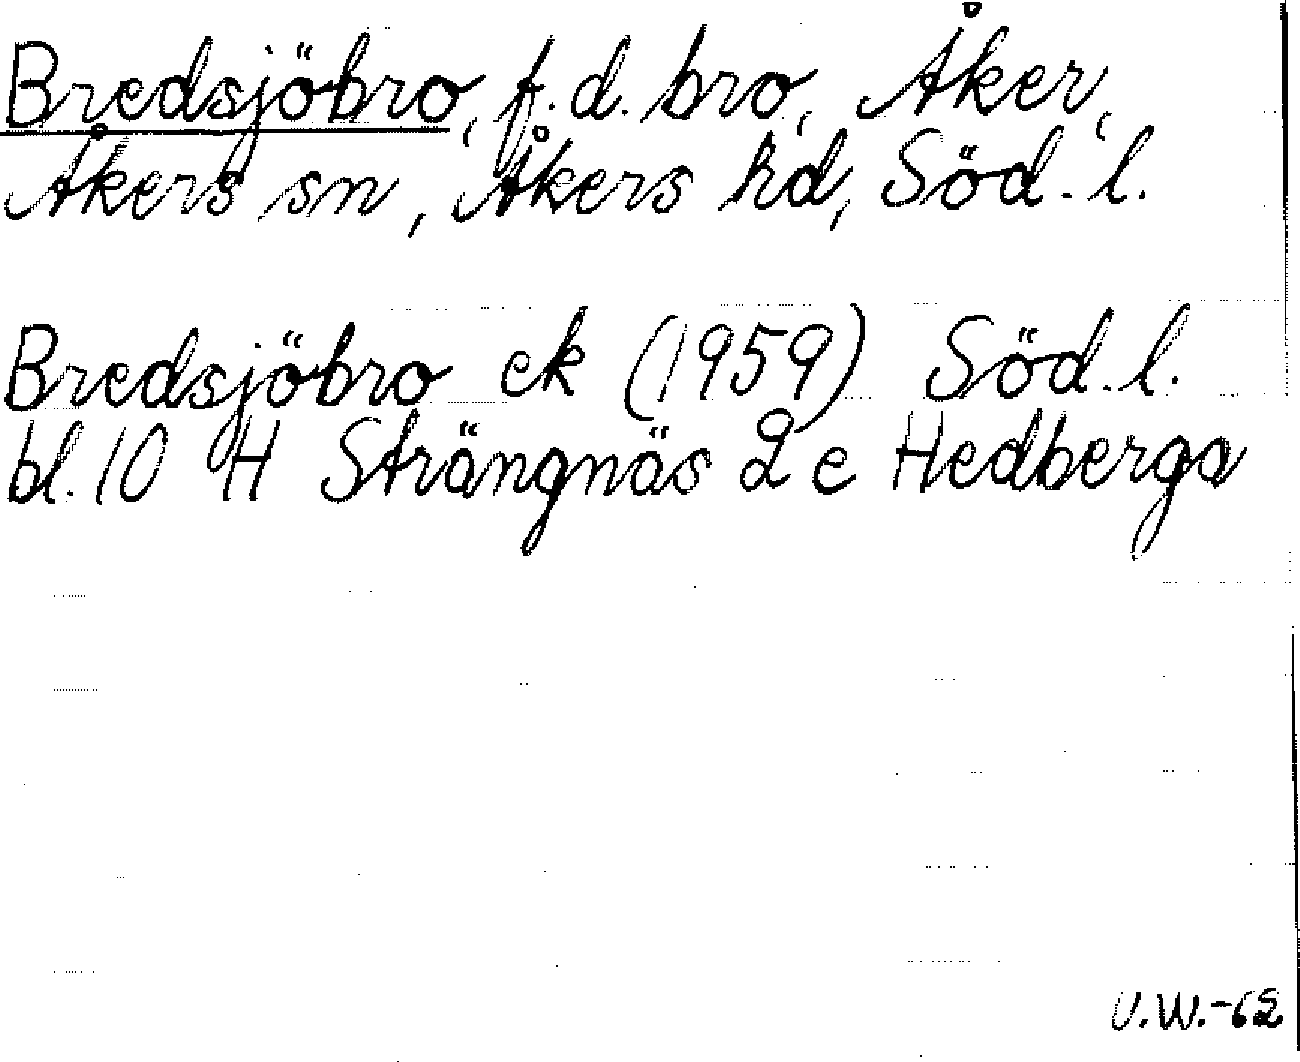 Bredsjöbro, f.d. bro, Åker,
Åkers sn, Åkers hd, Söd. l.
Bredsjöbro ek (1959) Söd. l.
bl. 10 H Strängnäs 2 e Hedberga
U.W.-62